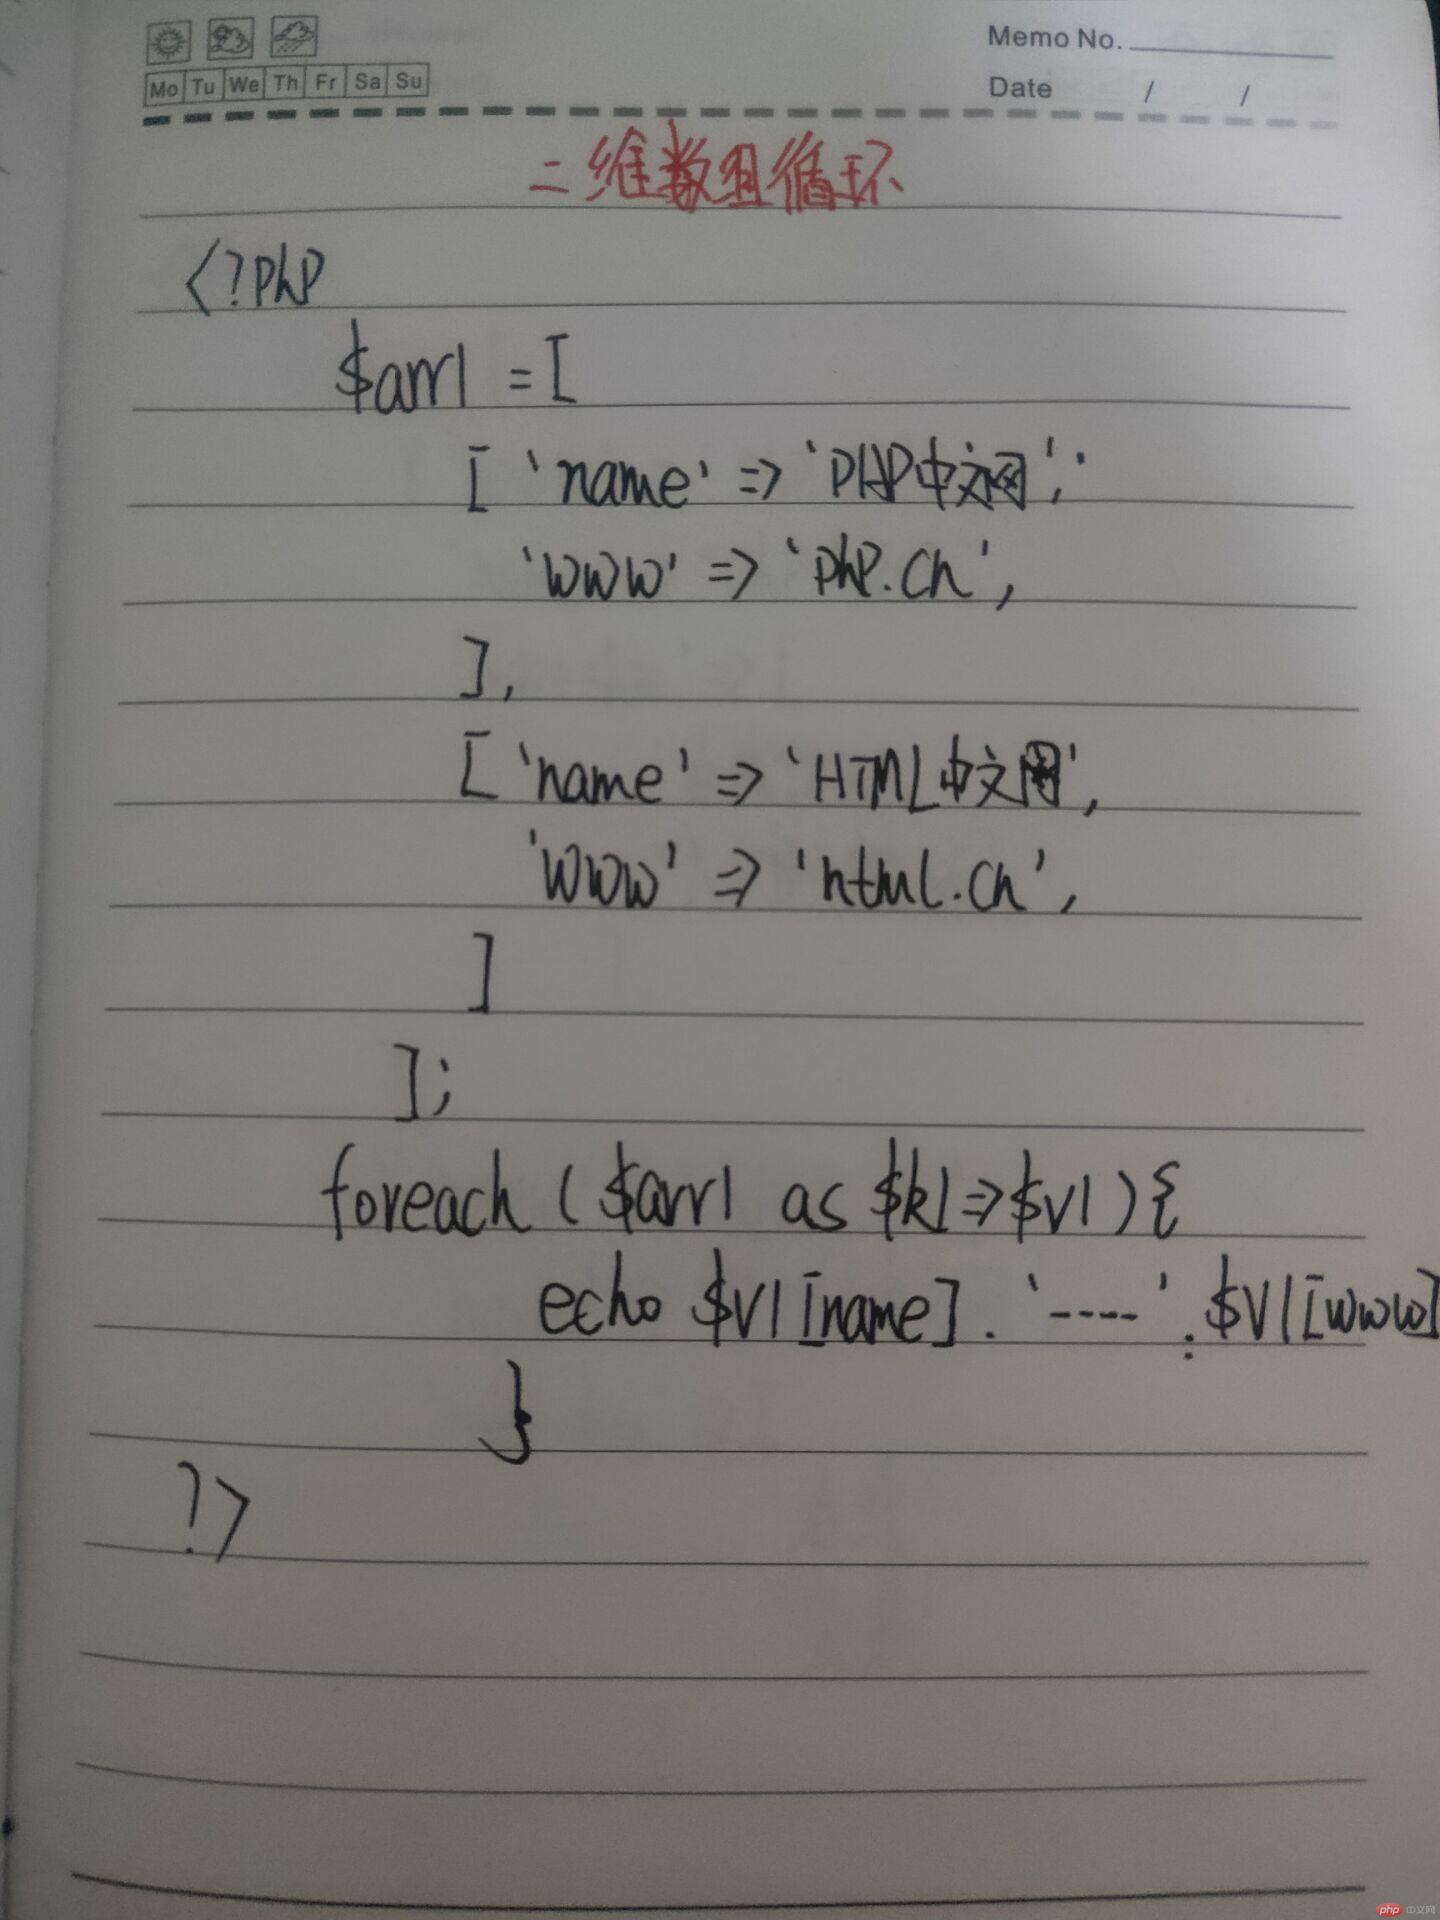 Mo Tu We Th Fr Sa Su
Memo No.
Date / /
二维数组循环
<?php
$arr1 = [
['name' => 'PHP中文网',
'www' => 'php.cn',
],
['name' => 'HTML中文网',
'www' => 'html.cn',
]
];
foreach ($arr1 as $k1=>$v1){
echo $v1[name] . '----' . $v1[www]
}
?>
php 中文网